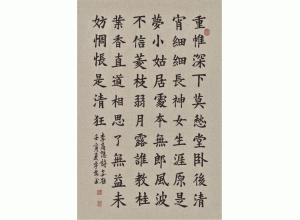 重帷深下莫愁堂臥後清
宵細細長神女生涯原是
夢小姑居處本無郎風波
不信菱枝弱月露誰教桂
葉香直道相思了無益未
妨惆悵是清狂
李商隱詩
壬寅夏